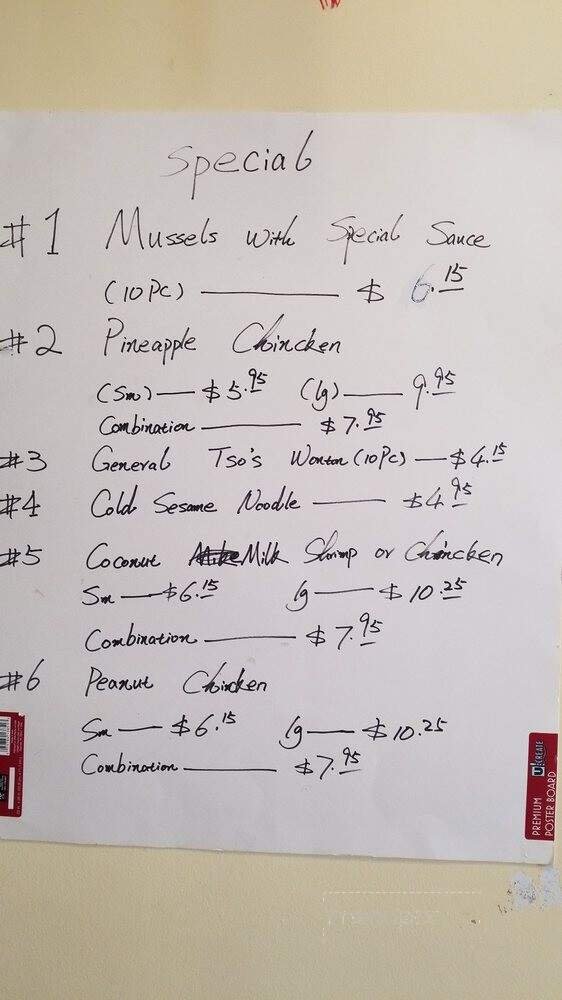 Special
#1 Mussels with Special Sauce
(10 Pc) — $ 6.15
#2 Pineapple Choincken
(Sm) — $5.95 (lg) — 9.95
Combination — $7.95
#3 General Tso's Wonton (10 Pc) — $4.15
#4 Cold Sesame Noodle — $4.95
#5 Coconut Milk Shrimp or Chincken
Sm — $6.15 lg — $10.25
Combination — $7.95
#6 Peanut Chicken
Sm — $6.15 lg — $10.25
Combination — $7.95
U CREATE
PREMIUM
POSTER BOARD